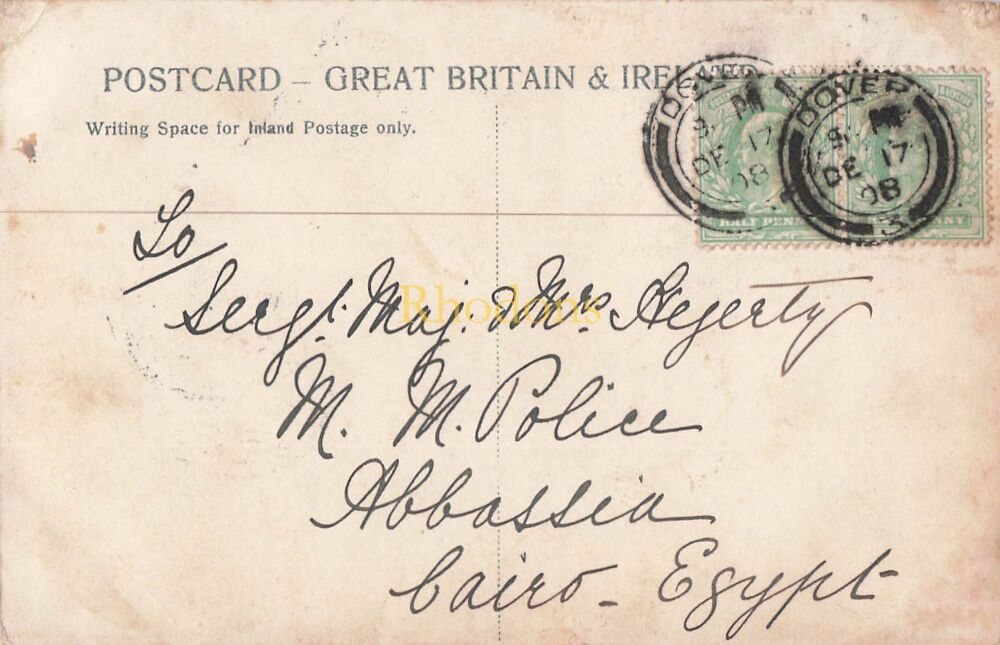 POSTCARD – GREAT BRITAIN & IRELAND
Writing Space for Inland Postage only.
DOVER
9. PM
DE 17
08
DOVER
9. PM
DE 17
08
3
HALF PENNY
To
Sergt. Maj. & Mrs Hegerty
M. M. Police
Abbassia
Cairo – Egypt
Rhodons